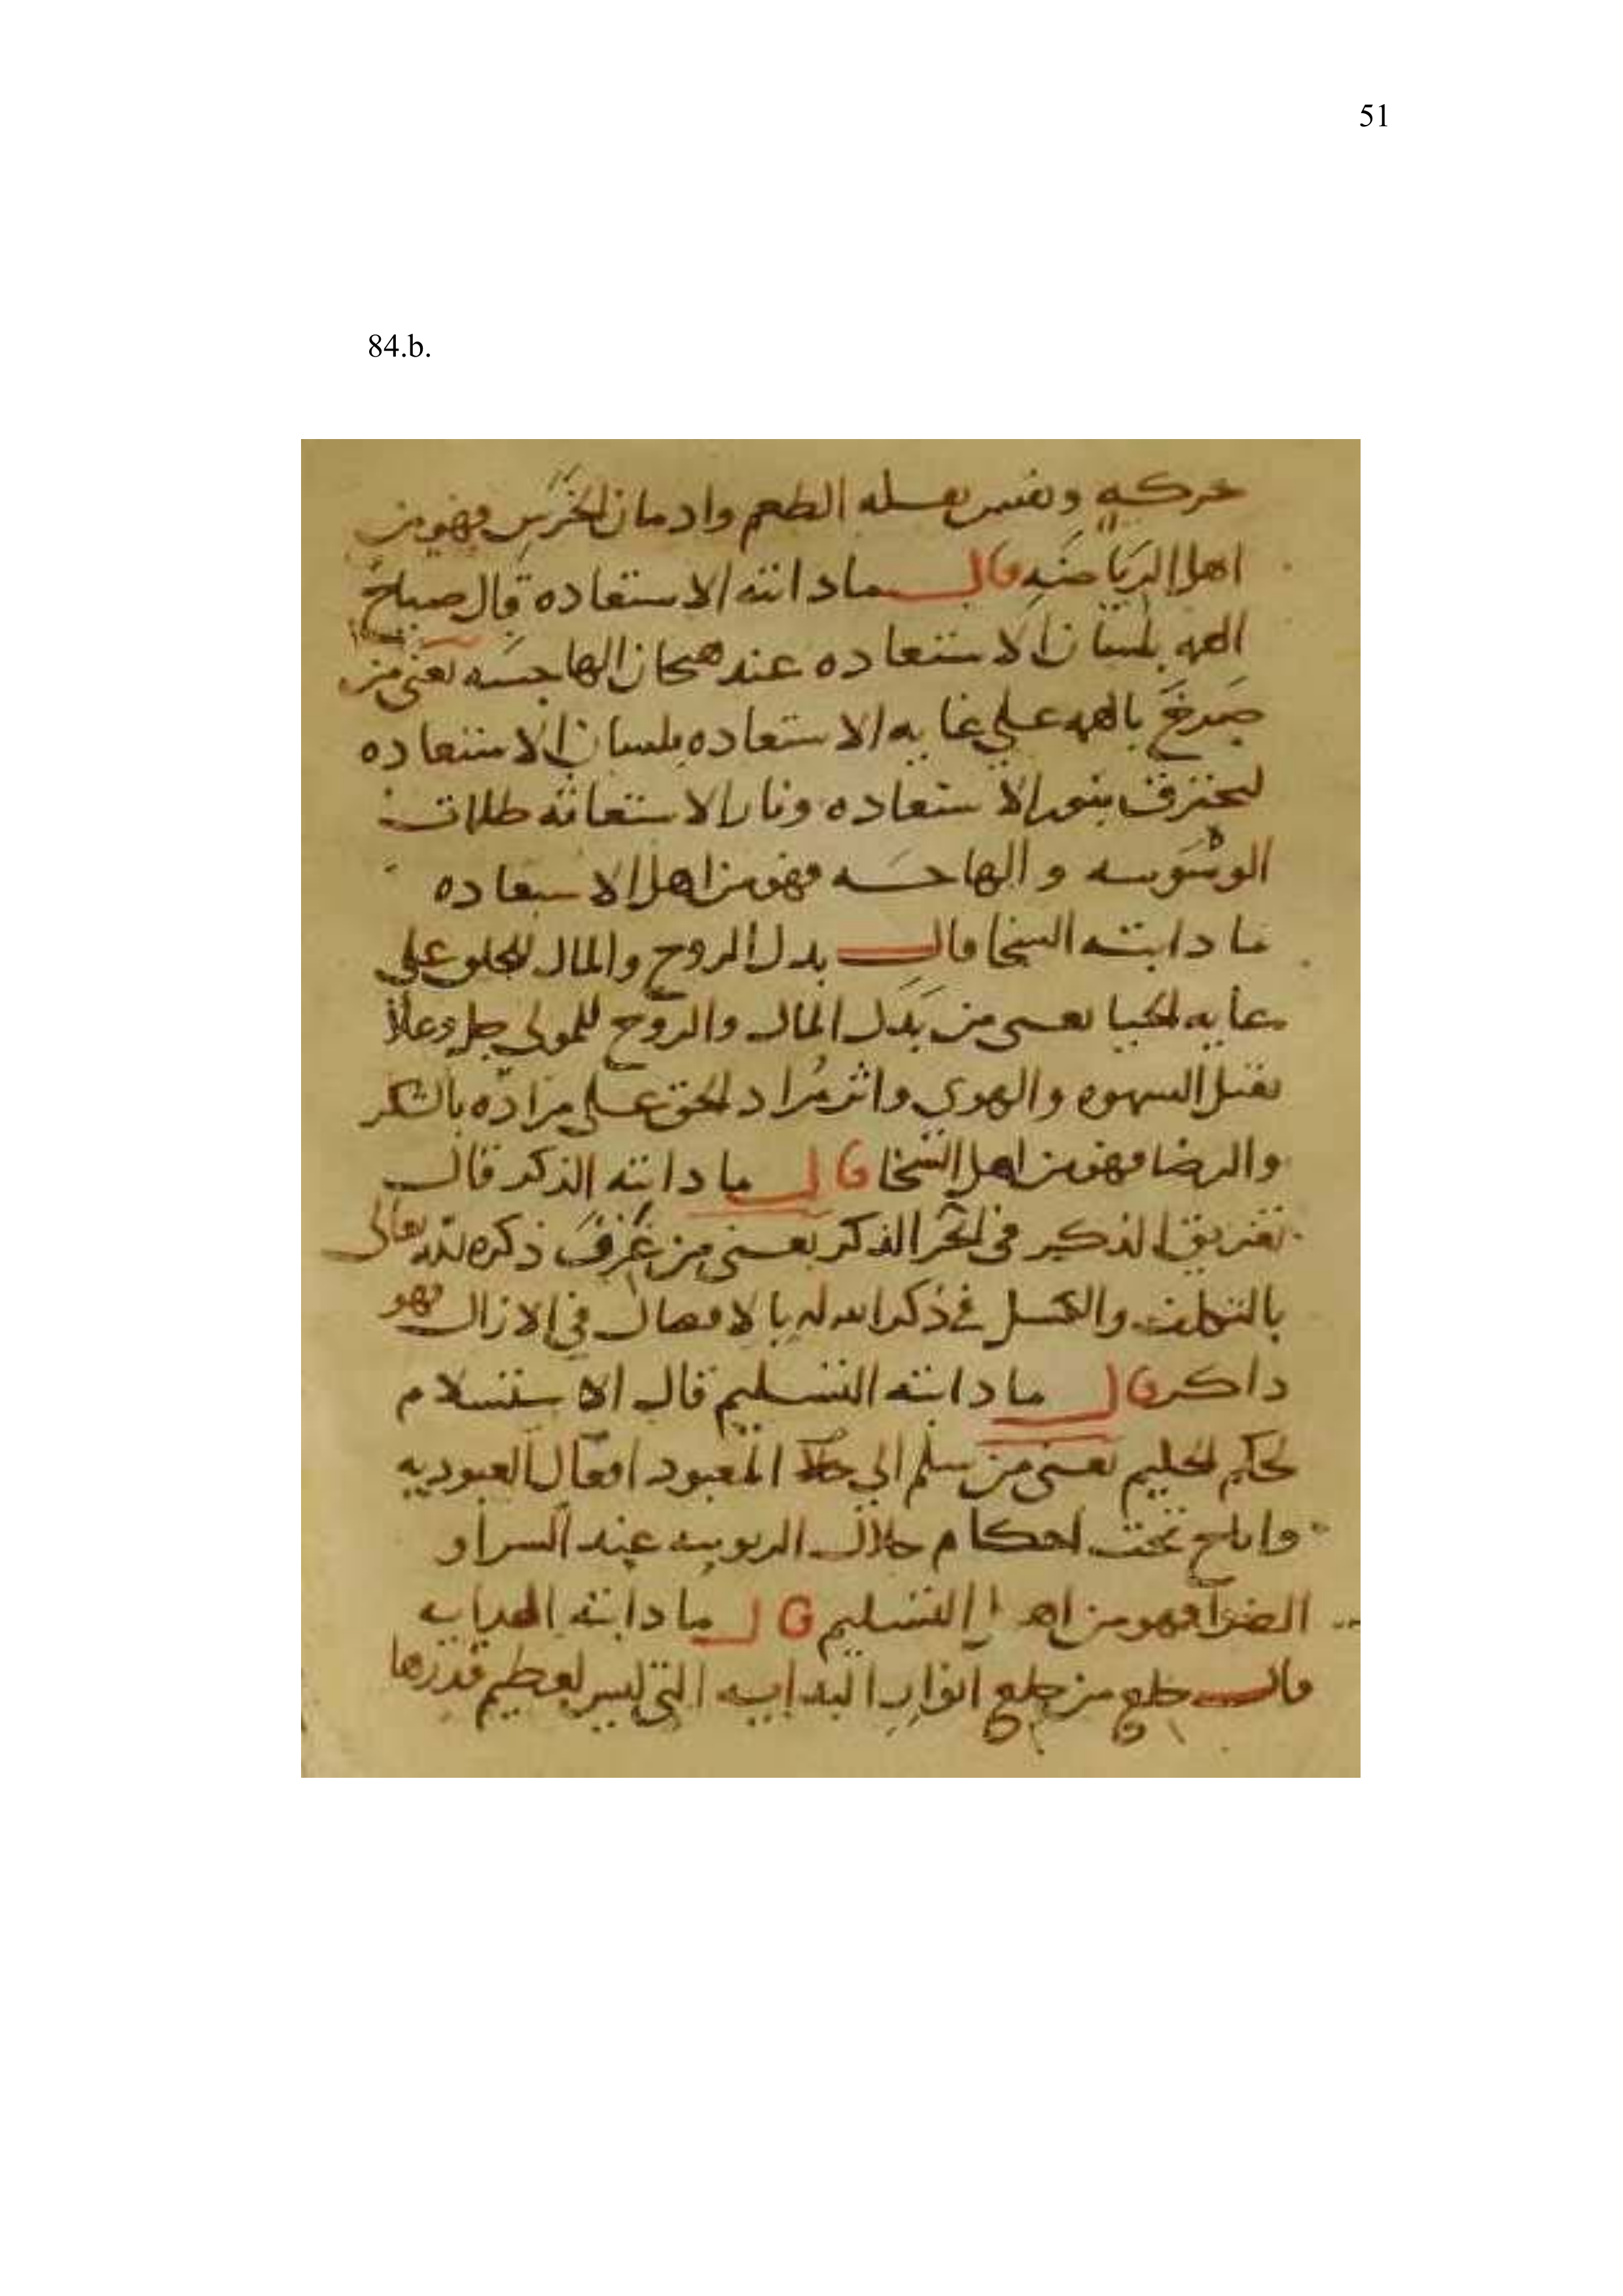 51
84.b.
حركه ونفس بقله الطعم وادمان الخرس فهو من
اهل الرياضه قال ما دانته الاستعاده قال صباح
الهه بلسان الاستعاده عند هيجان الهاجسه يعني من
صرخ بالهه علي غايه الاستعاده بلسان الاستعاده
ليحترق بنور الاستعاده ونار الاستعانه ظلمات
الوسوسه والهاجسه فهو من اهل الاستعاده
ما دانته السخا قال بدل الروح والمال للخلو علي
غايه الحيا يعني من بدل المال والروح للمولي جل وعلا
بقتل الشهوه والهوي واثر مراد الحق علي مراده بالشكر
والرضا فهو من اهل السخا قال ما دانته الذكر قال
تغريق الذكير في بحر الذكر يعني من غرق ذكره لله تعالى
بالتكلف والكسل في ذكر الله له بالافضال في الازال فهو
داكر قال ما دانته التسليم قال الاستسلام
لحكم الحليم يعني من سلم الي المعبود افعال العبوديه
واناخ تحت احكام جلال الربوبيه عند السرا و
الضرا فهو من اهل التسليم قال ما دانته الهدايه
قال خلع من خلع انوار البدايه التي ليس لعظيم قدرها